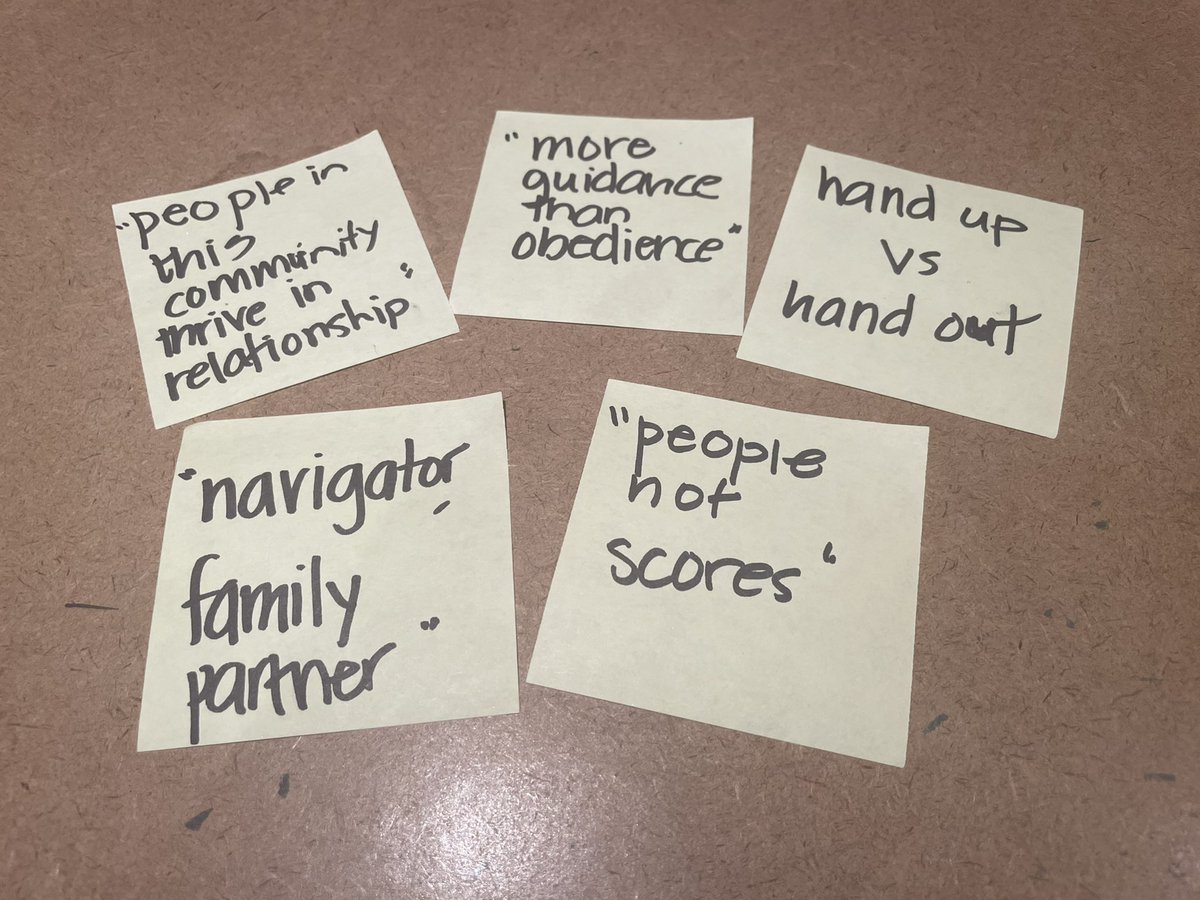 "people in
this
community
thrive in
relationship"
"more
guidance
than
obedience"
hand up
vs
hand out
"navigator,
family
partner"
"people
not
scores"